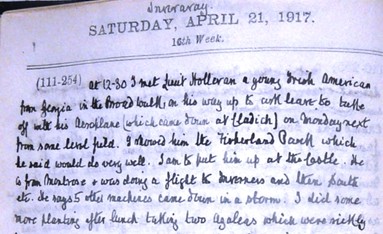 Inveraray.
SATURDAY, APRIL 21, 1917.
16th Week.
(111-254) at 12-30 I met Lieut Holleran a young Irish American
from Georgia in the Broad Walk, on his way up to ask leave to take
off with his Aeroplane (which came down at Cladich) on Monday next
from some level field. I showed him the Fisherland Park which
he said would do very well. I am to put him up at the Castle. He
is from Montrose & was doing a flight to Inverness and then South
etc. He says 5 other machines came down in a storm. I did some
more planting after lunch taking two Azaleas which were sickly